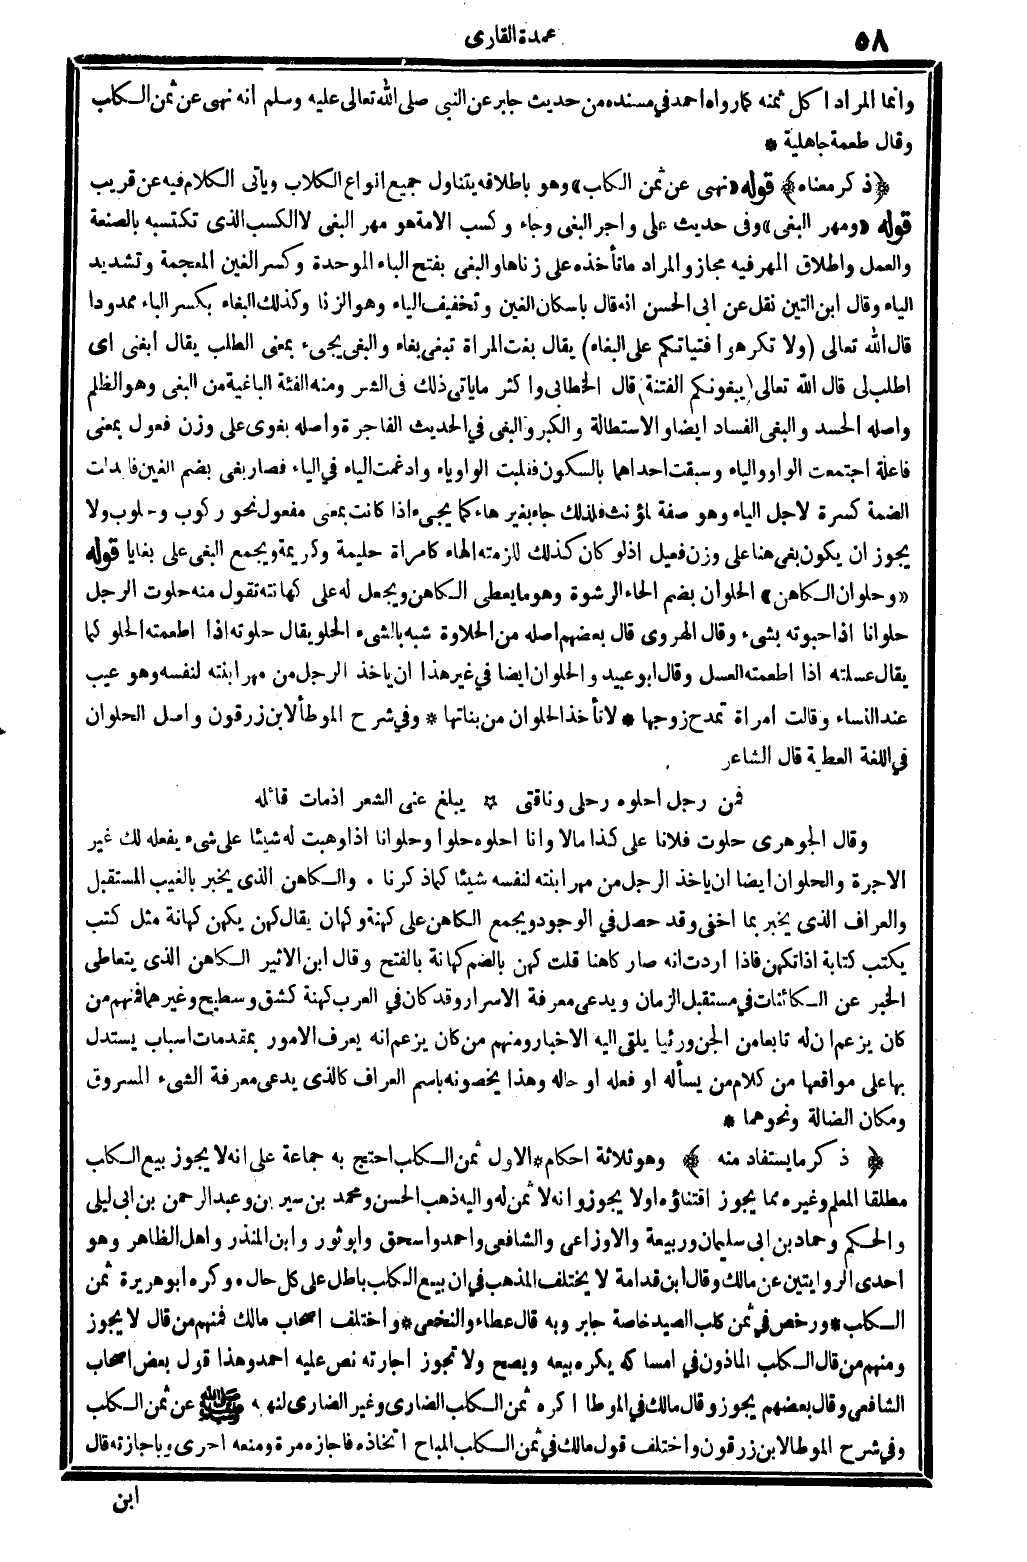 ٥٨
عمدة القارى
وانما المراد اكل ثمنه كما رواه احمد في مسنده من حديث جابر عن النبي صلى الله تعالى عليه وسلم انه نهى عن ثمن الكلب
وقال طعمة جاهلية *
﴿ ذكر معناه ﴾ قوله «نهى عن ثمن الكلب» وهو باطلاقه يتناول جميع انواع الكلاب وياتى الكلام فيه عن قريب
قوله «ومهر البغى» وفى حديث على واجر البغى وجاء وكسب الامة هو مهر البغى لا الكسب الذى تكتسبه بالصنعة
والعمل واطلاق المهر فيه مجاز والمراد ما تأخذه على زناها والبغى بفتح الباء الموحدة وكسر الغين المعجمة وتشديد
الياء وقال ابن التين نقل عن ابى الحسن انه قال باسكان الغين وتخفيف الياء وهو الزنا وكذلك البغاء بكسر الباء ممدودا
قال الله تعالى (ولا تكرهوا فتياتكم على البغاء) يقال بغت المراة تبغى بغاء والبغى يجىء بمعنى الطلب يقال ابغنى اى
اطلب لى قال الله تعالى (يبغونكم الفتنة) قال الخطابى واكثر ما ياتى ذلك فى الشر ومنه الفئة الباغية من البغى وهو الظلم
واصله الحسد والبغى الفساد ايضا والاستطالة والكبر والبغى في الحديث الفاجرة واصله بغوى على وزن فعول بمعنى
فاعلة اجتمعت الواو والياء وسبقت احداهما بالسكون فقلبت الواو ياء وادغمت الياء في الياء فصار بغى بضم الغين فابدلت
الضمة كسرة لاجل الياء وهو صفة لمؤنث فلذلك جاء بغير هاء كما يجىء اذا كانت بمعنى مفعول نحو ركوب وحلوب ولا
يجوز ان يكون بغى هنا على وزن فعيل اذ لو كان كذلك للزمته الهاء كامراة حليمة وكريمة ويجمع البغى على بغايا قوله
«وحلوان الكاهن» الحلوان بضم الحاء الرشوة وهو ما يعطى الكاهن ويجعل له على كهانته تقول منه حلوت الرجل
حلوانا اذا حبوته بشىء وقال الهروى قال بعضهم اصله من الحلاوة شبه بالشىء الحلو يقال حلوته اذا اطعمته الحلو كما
يقال عسلته اذا اطعمته العسل وقال ابو عبيد والحلوان ايضا في غير هذا ان ياخذ الرجل من مهر ابنته لنفسه وهو عيب
عند النساء وقالت امراة تمدح زوجها * لا نأخذ الحلوان من بناتها * وفي شرح الموطأ لابن زرقون واصل الحلوان
في اللغة العطية قال الشاعر
فمن رجل احلوه رحلى وناقتى ☆ يبلغ عنى الشعر اذ مات قائله
وقال الجوهرى حلوت فلانا على كذا مالا وانا احلوه حلوا وحلوانا اذا وهبت له شيئا على شىء يفعله لك غير
الاجرة والحلوان ايضا ان ياخذ الرجل من مهر ابنته لنفسه شيئا كما ذكرنا . والكاهن الذى يخبر بالغيب المستقبل
والعراف الذى يخبر بما اخفى وقد حصل في الوجود ويجمع الكاهن على كهنة وكهان يقال كهن يكهن كهانة مثل كتب
يكتب كتابة اذا تكهن فاذا اردت انه صار كاهنا قلت كهن بالضم كهانة بالفتح وقال ابن الاثير الكاهن الذى يتعاطى
الخبر عن الكائنات في مستقبل الزمان ويدعى معرفة الاسرار وقد كان في العرب كهنة كشق وسطيح وغيرهما فمنهم من
كان يزعم ان له تابعا من الجن ورئيا يلقى اليه الاخبار ومنهم من كان يزعم انه يعرف الامور بمقدمات اسباب يستدل
بها على مواقعها من كلام من يسأله او فعله او حاله وهذا يخصونه باسم العراف كالذى يدعى معرفة الشىء المسروق
ومكان الضالة ونحوهما *
﴿ ذكر ما يستفاد منه ﴾ وهو ثلاثة احكام * الاول ثمن الكلب احتج به جماعة على انه لا يجوز بيع الكلب
مطلقا المعلم وغيره مما يجوز اقتناؤه اولا يجوز وانه لا ثمن له واليه ذهب الحسن ومحمد بن سيرين وعبد الرحمن بن ابى ليلى
والحكم وحماد بن ابى سليمان وربيعة والاوزاعى والشافعى واحمد واسحق وابو ثور وابن المنذر واهل الظاهر وهو
احدى الروايتين عن مالك وقال ابن قدامة لا يختلف المذهب في ان بيع الكلب باطل على كل حاله وكره ابو هريرة ثمن
الكلب * ورخص في ثمن كلب الصيد خاصة جابر وبه قال عطاء والنخعى * واختلف اصحاب مالك فمنهم من قال لا يجوز
ومنهم من قال الكلب الماذون في امساكه يكره بيعه ويصح ولا تجوز اجارته نص عليه احمد وهذا قول بعض اصحاب
الشافعى وقال بعضهم يجوز وقال مالك في الموطا اكره ثمن الكلب الضارى وغير الضارى لنهيه ﷺ عن ثمن الكلب
وفي شرح الموطا لابن زرقون واختلف قول مالك في ثمن الكلب المباح اتخاذه فاجازه مرة ومنعه اخرى وباجازته قال
ابن